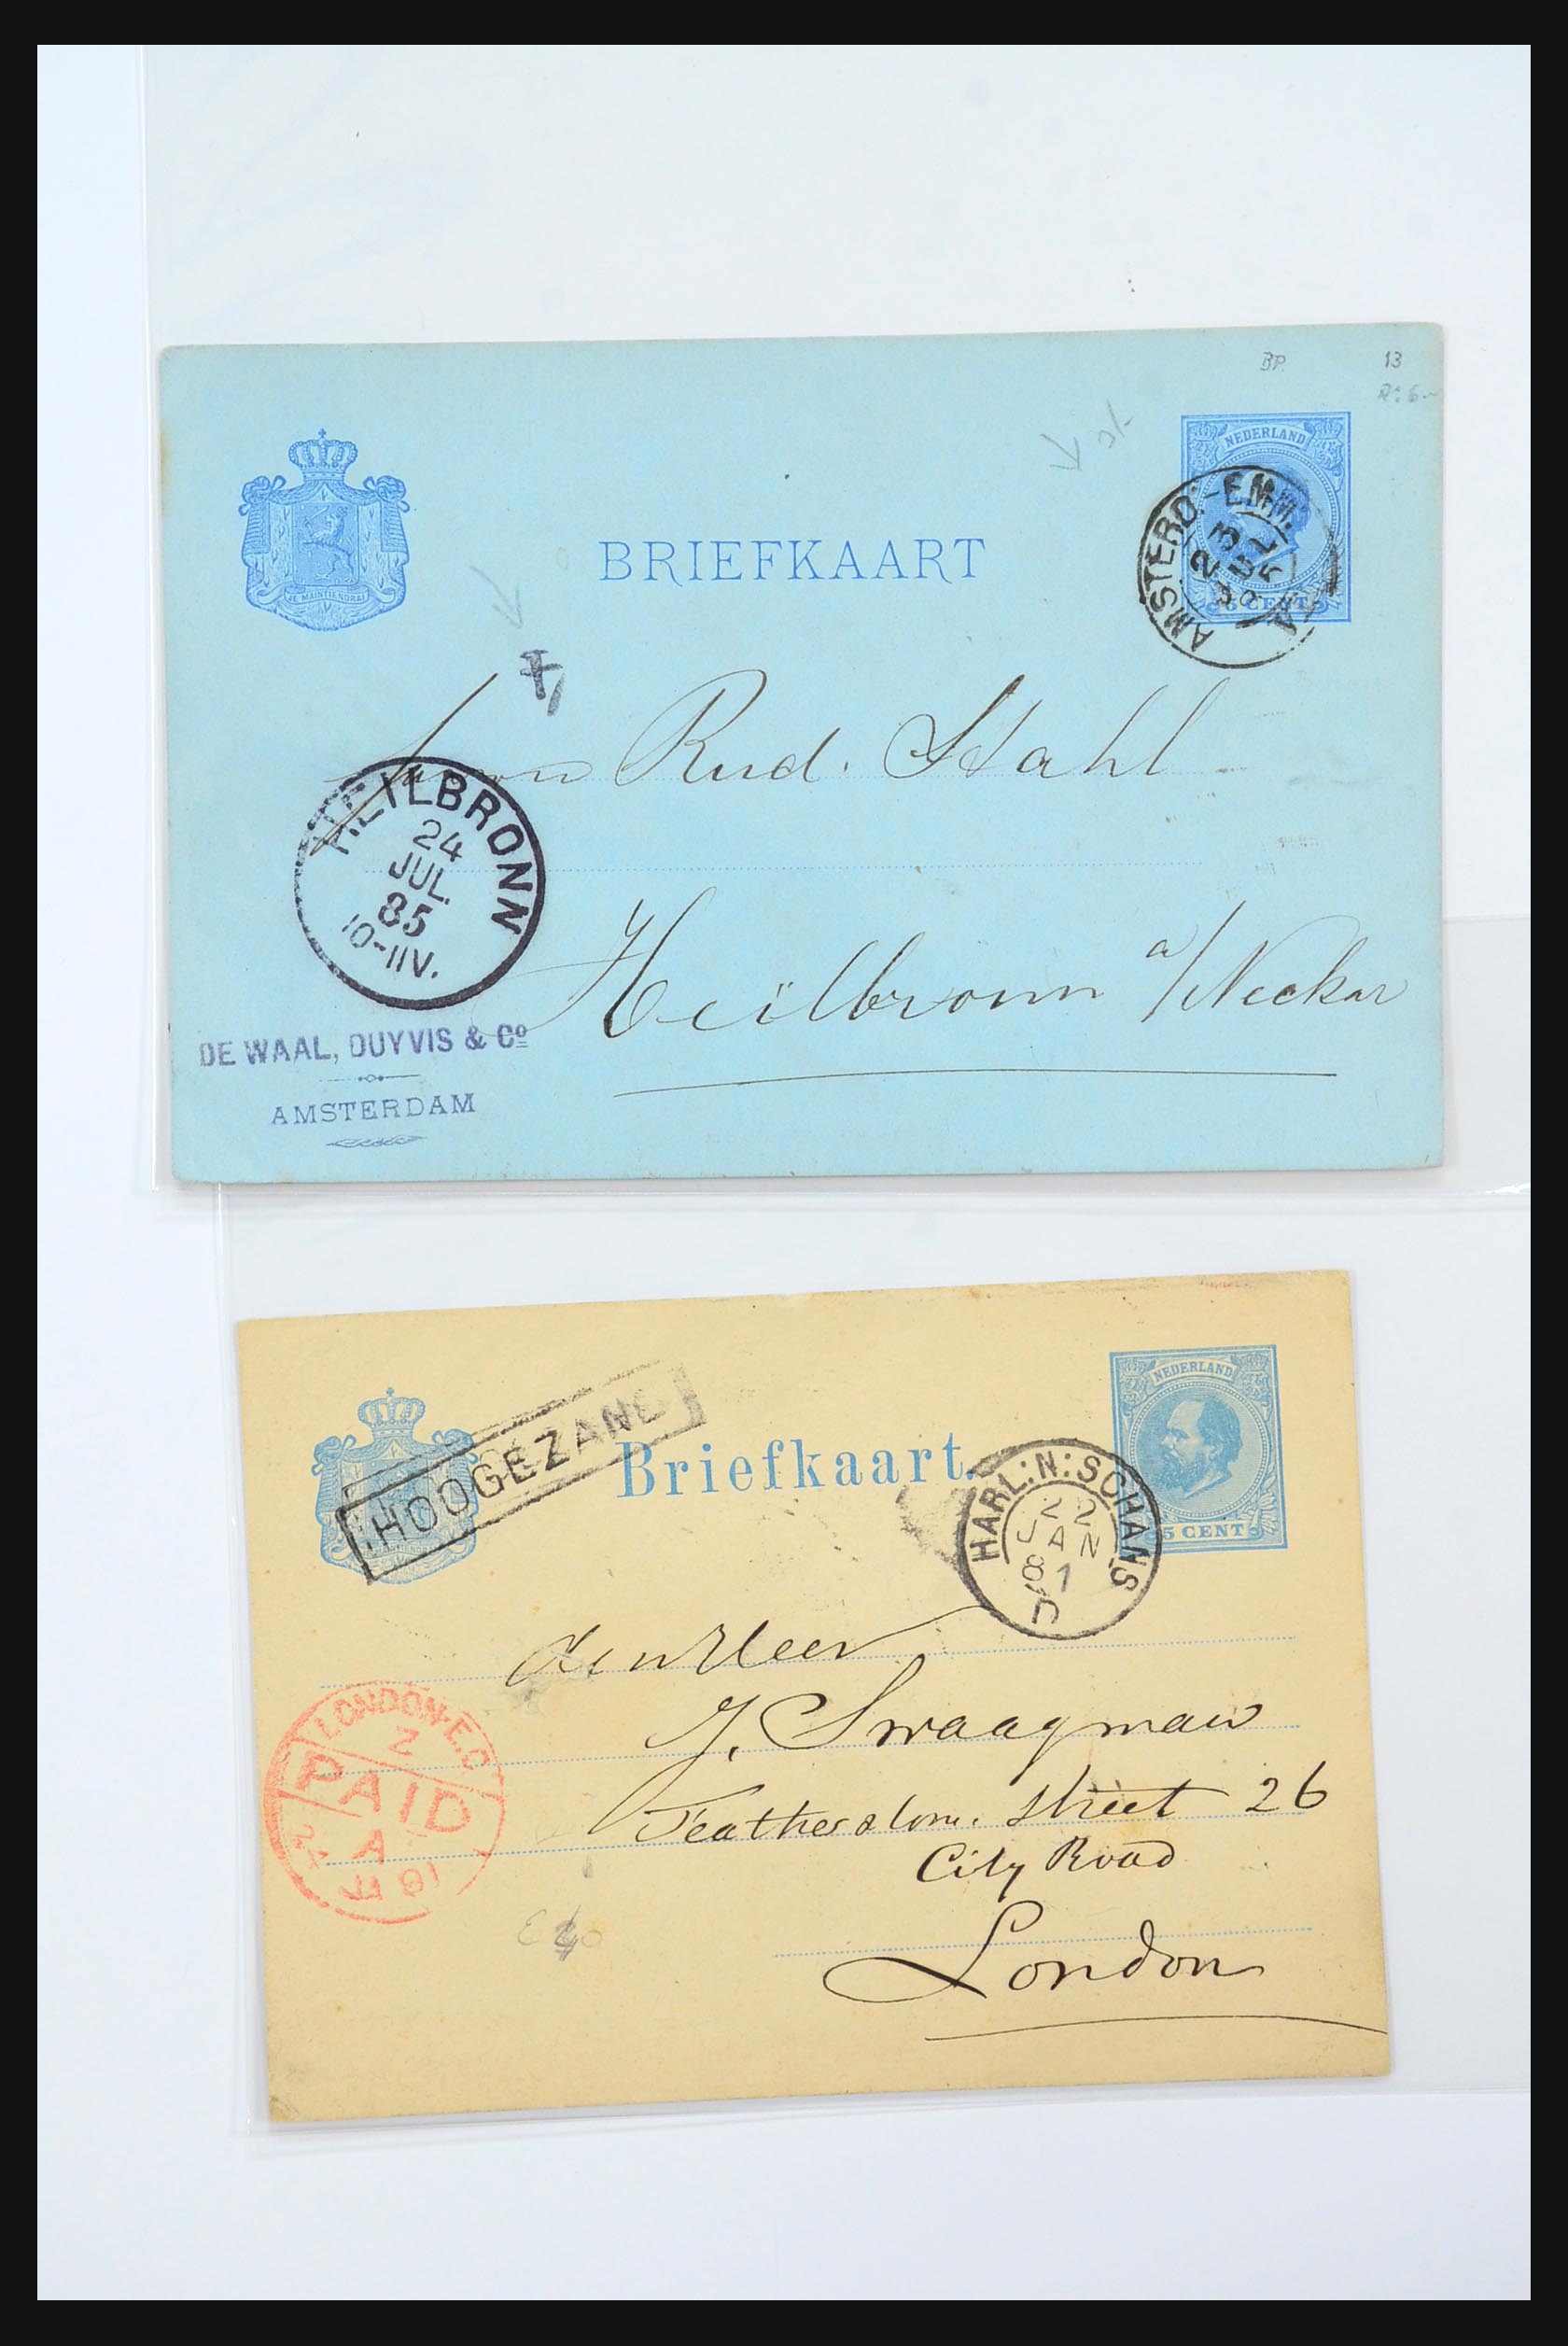 BP 13
NEDERLAND
JE MAINTIENDRAI
BRIEFKAART
AMSTERD:-EMM.
23
JUL
85
5 CENT
Rud. Stahl
HEILBRONN
24
JUL.
85
10-11V.
Heilbronn a/Neckar
DE WAAL, DUYVIS & Co
AMSTERDAM
NEDERLAND
5 CENT
HOOGEZAND
Briefkaart.
HARL:N:SCHANS
22
JAN
81
D
den Heer
J. Swaagman
Street 26
City Road
London
LONDON.E.C
Z
PAID
A
24
JA 81